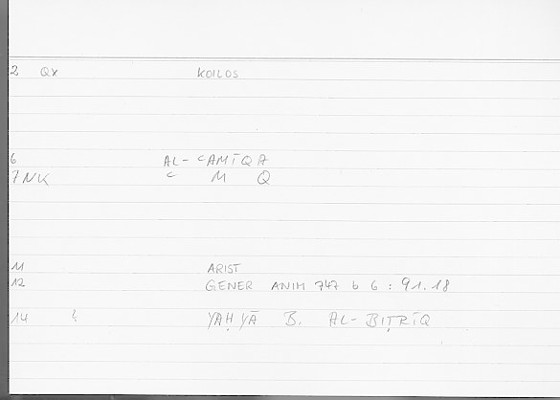 2 QX KOILOS
6 AL- ʿAMĪQA
7 NK ʿ M Q
11 ARIST
12 GENER ANIM 747 b 6 : 91.18
14 YAḤYĀ B. AL-BIṬRĪQ